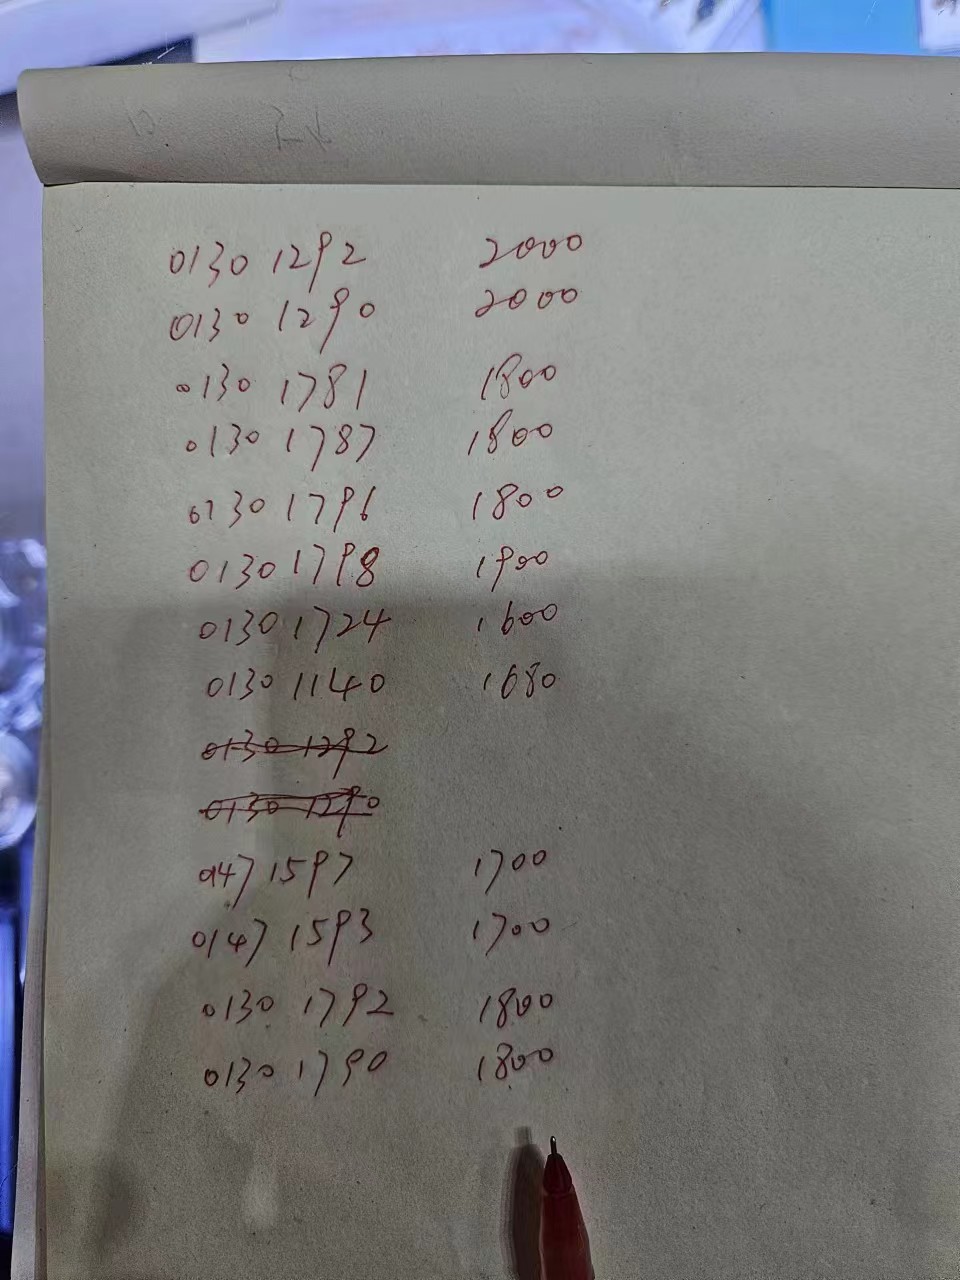 0130 1292 2000
0130 1290 2000
0130 1781 1800
0130 1787 1800
0130 1796 1800
0130 1798 1900
0130 1724 1600
0130 1140 1680
0130 1292
0130 1290
0147 1597 1700
0147 1593 1700
0130 1792 1800
0130 1790 1800